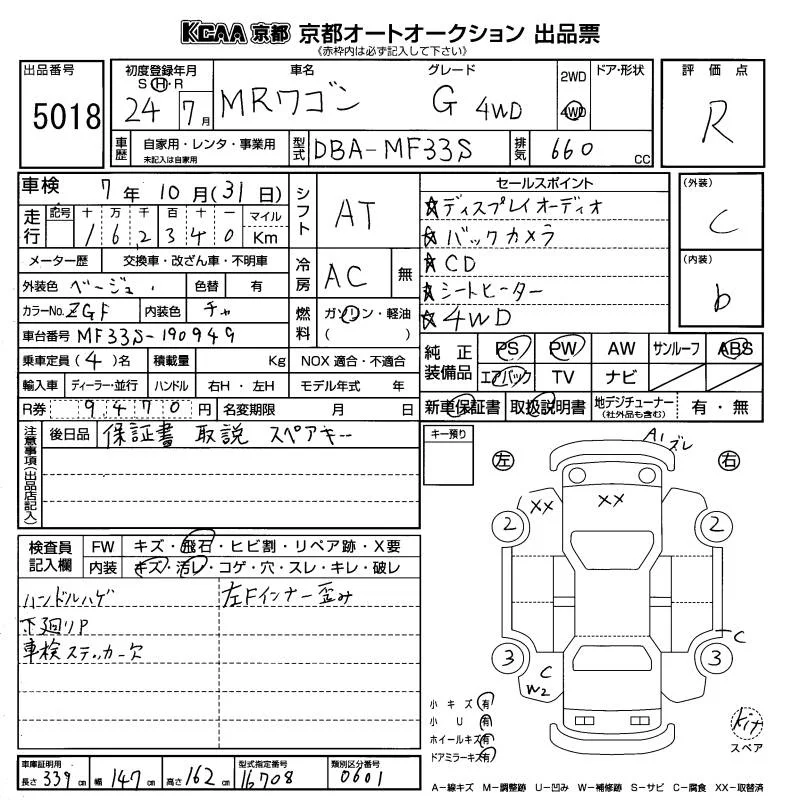 KCAA 京都 京都オートオークション 出品票
《赤枠内は必ず記入して下さい》
出品番号
5018
初度登録年月
S H・R
24 7 月
車名
MRワゴン
グレード
G 4WD
2WD
4WD
ドア・形状
評価点
R
車歴
自家用・レンタ・事業用
未記入は自家用
型式
DBA-MF33S
排気
660 CC
車検 7年 10月(31日)
走行 記号 十 万 千 百 十 一 マイル
1 6 2 3 4 0 Km
メーター歴 交換車・改ざん車・不明車
外装色 ベージュ 色替 有
カラーNo. ZGF 内装色 チャ
車台番号 MF33S-190949
乗車定員 (4)名 積載量 Kg
輸入車 ディーラー・並行 ハンドル 右H・左H
R券 9470円 名変期限 月 日
シフト AT
冷房 AC 無
燃料 ガソリン・軽油
( )
NOX 適合・不適合
モデル年式 年
セールスポイント
☆ディスプレイオーディオ
☆バックカメラ
☆CD
☆シートヒーター
☆4WD
(外装)
C
(内装)
b
純正装備品
PS PW AW サンルーフ ABS
エアバック TV ナビ
新車保証書 取扱説明書 地デジチューナー(社外品も含む) 有・無
注意事項(出品店記入)
後日品 保証書 取説 スペアキー
キー預り
検査員記入欄
FW キズ・飛石・ヒビ割・リペア跡・X要
内装 キズ・汚レ・コゲ・穴・スレ・キレ・破レ
ハンドルハゲ 左Fインナー歪み
下廻りP
車検ステッカー欠
左 右
A1 ズレ
XX XX
2 2
3 3
C
C
W2
小キズ 有
小U 有
ホイールキズ 有
ドアミラーキズ 有
kit
スペア
車庫証明用
長さ 339 cm 幅 147 cm 高さ 162 cm
型式指定番号
16708
類別区分番号
0601
A-線キズ M-調整跡 U-凹み W-補修跡 S-サビ C-腐食 XX-取替済